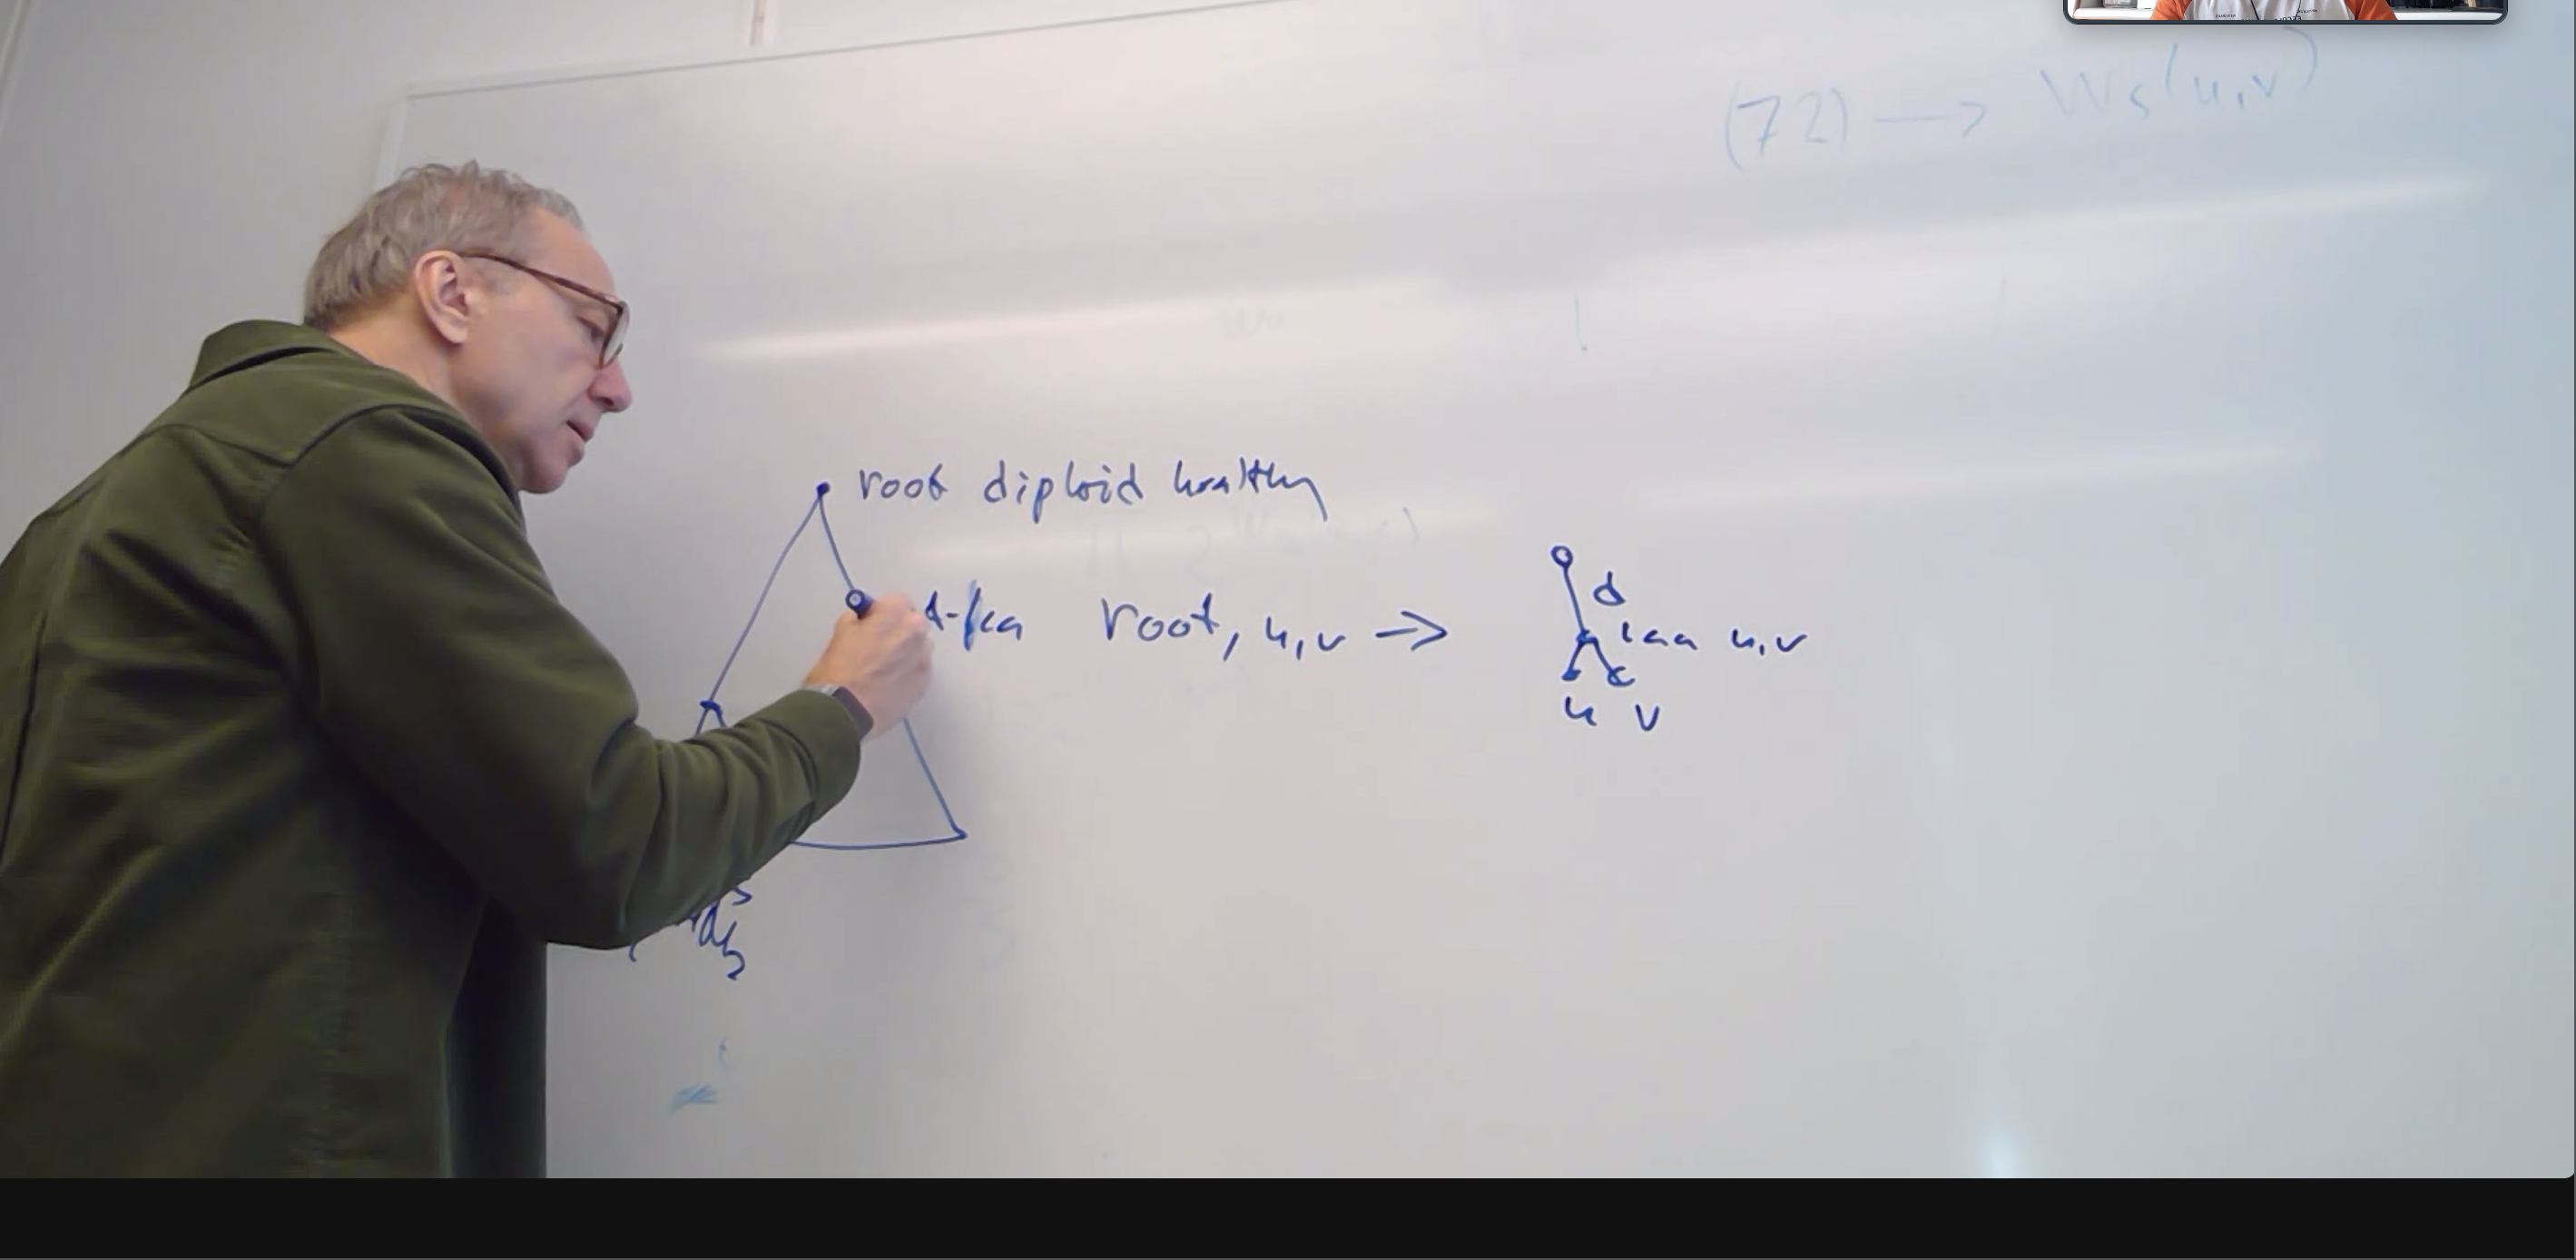 (72) → Ws(u,v)
root diploid healthy
root, u,v →
d
lca u,v
u v